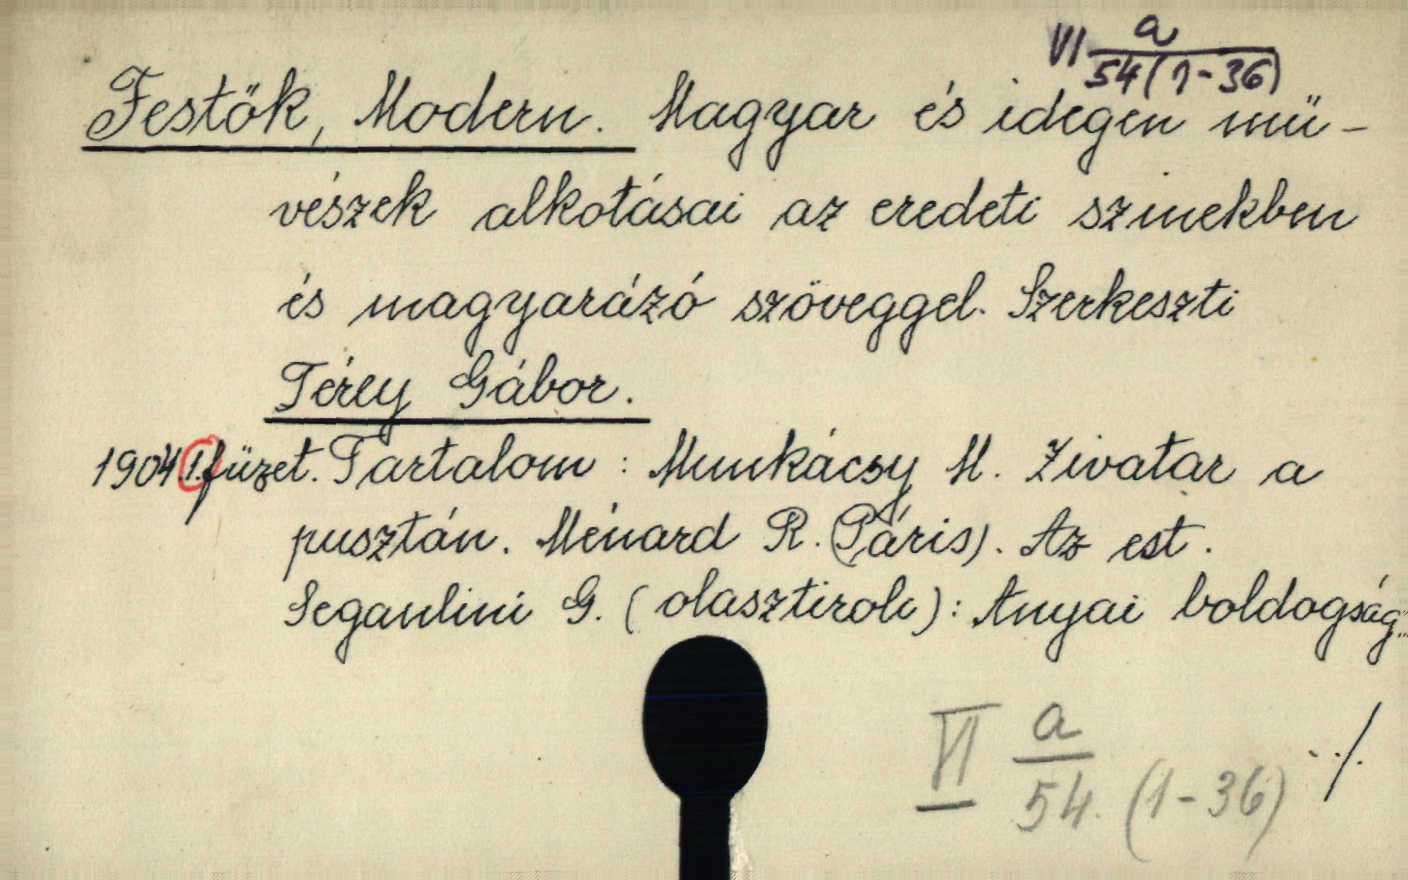 VI a
54 (1-36)
Festők, Modern. Magyar és idegen mű-
vészek alkotásai az eredeti szinekben
és magyarázó szöveggel. Szerkeszti
Térey Gábor.
1904. 1. füzet. Tartalom: Munkácsy M. Zivatar a
pusztán. Ménard R. (Páris). Az est.
Segantini G. (olasztiroli): Anyai boldogság..
VI a
54. (1-36)
./.